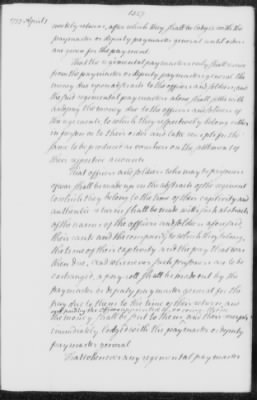 1777 April 1
weekly returns, after which they shall be lodged with the
paymaster or deputy paymaster general until orders
are given for the payment
That the regimental paymasters only shall receive
from the paymaster or deputy paymaster general the
money due upon abstracts to the officers and soldiers, and
the said regimental paymasters alone shall settle with
and pay the money due to the officers and soldiers of
the regiments to which they respectively belong either
in person or to their order and take receipts for the
same to be produced as vouchers on the settlement of
their respective accounts
That officers and soldiers who may be prisoners
of war shall be made up in the abstracts of the regiment
to which they belong to the time of their captivity and
authentic returns shall be made with such abstracts
of the names of the officers and soldiers aforesaid
their ranks and the companies to which they belong,
the time of their captivity and the pay that was
then due, and whenever such prisoners are to be
exchanged, a pay roll shall be made out by the
paymaster or deputy paymaster general for the
pay due to them to the time of their return, and
the money shall be paid to them, and their receipts
immediately lodged with the paymaster or deputy
paymaster general
That whenever any regimental paymaster